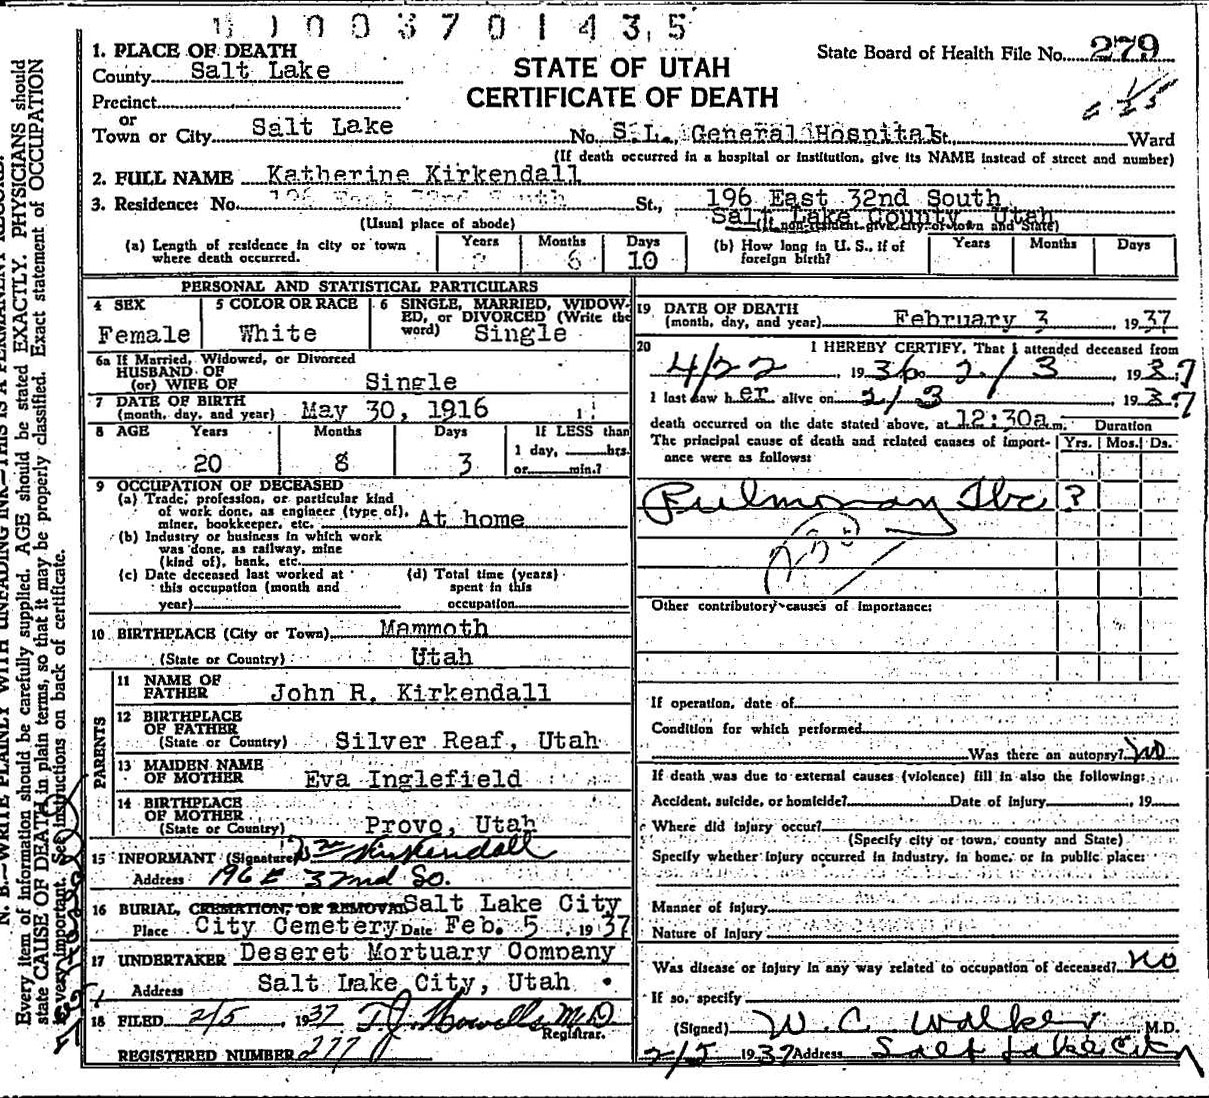 1003701435
1. PLACE OF DEATH
County Salt Lake
Precinct
or
Town or City Salt Lake
STATE OF UTAH
CERTIFICATE OF DEATH
State Board of Health File No. 279
No. S.L. General Hospital St. Ward
(If death occurred in a hospital or institution, give its NAME instead of street and number)
2. FULL NAME Katherine Kirkendall
3. Residence: No. 196 East 32nd South St., 196 East 32nd South
Salt Lake County, Utah
(Usual place of abode) (If non-resident give city or town and State)
(a) Length of residence in city or town where death occurred. Years Months 6 Days 10
(b) How long in U. S., if of foreign birth? Years Months Days
PERSONAL AND STATISTICAL PARTICULARS
4 SEX Female
5 COLOR OR RACE White
6 SINGLE, MARRIED, WIDOWED, OR DIVORCED (Write the word) Single
6a If Married, Widowed, or Divorced
HUSBAND OF
(or) WIFE OF Single
7 DATE OF BIRTH
(month, day, and year) May 30, 1916
8 AGE Years Months Days If LESS than
1 day, hrs.
20 8 3 or min.?
9 OCCUPATION OF DECEASED
(a) Trade, profession, or particular kind
of work done, as engineer (type of),
miner, bookkeeper, etc. At home
(b) Industry or business in which work
was done, as railway, mine
(kind of), bank, etc.
(c) Date deceased last worked at
this occupation (month and
year)
(d) Total time (years)
spent in this
occupation
10 BIRTHPLACE (City or Town) Mammoth
(State or Country) Utah
PARENTS
11 NAME OF
FATHER John R. Kirkendall
12 BIRTHPLACE
OF FATHER
(State or Country) Silver Reaf, Utah
13 MAIDEN NAME
OF MOTHER Eva Inglefield
14 BIRTHPLACE
OF MOTHER
(State or Country) Provo, Utah
15 INFORMANT (Signature) Wm Kirkendall
Address 196 E 32nd So.
16 BURIAL, CREMATION, OR REMOVAL Salt Lake City
Place City Cemetery Date Feb. 5 1937
17 UNDERTAKER Deseret Mortuary Company
Address Salt Lake City, Utah
18 FILED 2/5 1937 T.J. Howells M.D.
Registrar.
REGISTERED NUMBER 277
19 DATE OF DEATH
(month, day, and year) February 3, 1937
20 I HEREBY CERTIFY, That I attended deceased from
4/22 1936 2/3 1937
I last saw her alive on 2/3 1937
death occurred on the date stated above, at 12:30a m. Duration
The principal cause of death and related causes of importance were as follows: Yrs. Mos. Ds.
Pulmonary Tbc ?
Other contributory causes of importance:
If operation, date of
Condition for which performed
Was there an autopsy? No
If death was due to external causes (violence) fill in also the following:
Accident, suicide, or homicide? Date of injury , 19
Where did injury occur?
(Specify city or town, county and State)
Specify whether injury occurred in industry, in home, or in public place:
Manner of injury
Nature of injury
Was disease or injury in any way related to occupation of deceased? No
If so, specify
(Signed) W. C. Walker M.D.
2/5 1937 Address Salt Lake City
N. B.—WRITE PLAINLY WITH UNFADING INK—THIS IS A PERMANENT RECORD.
Every item of information should be carefully supplied. AGE should be stated EXACTLY. PHYSICIANS should
state CAUSE OF DEATH in plain terms, so that it may be properly classified. Exact statement of OCCUPATION
is very important. See instructions on back of certificate.